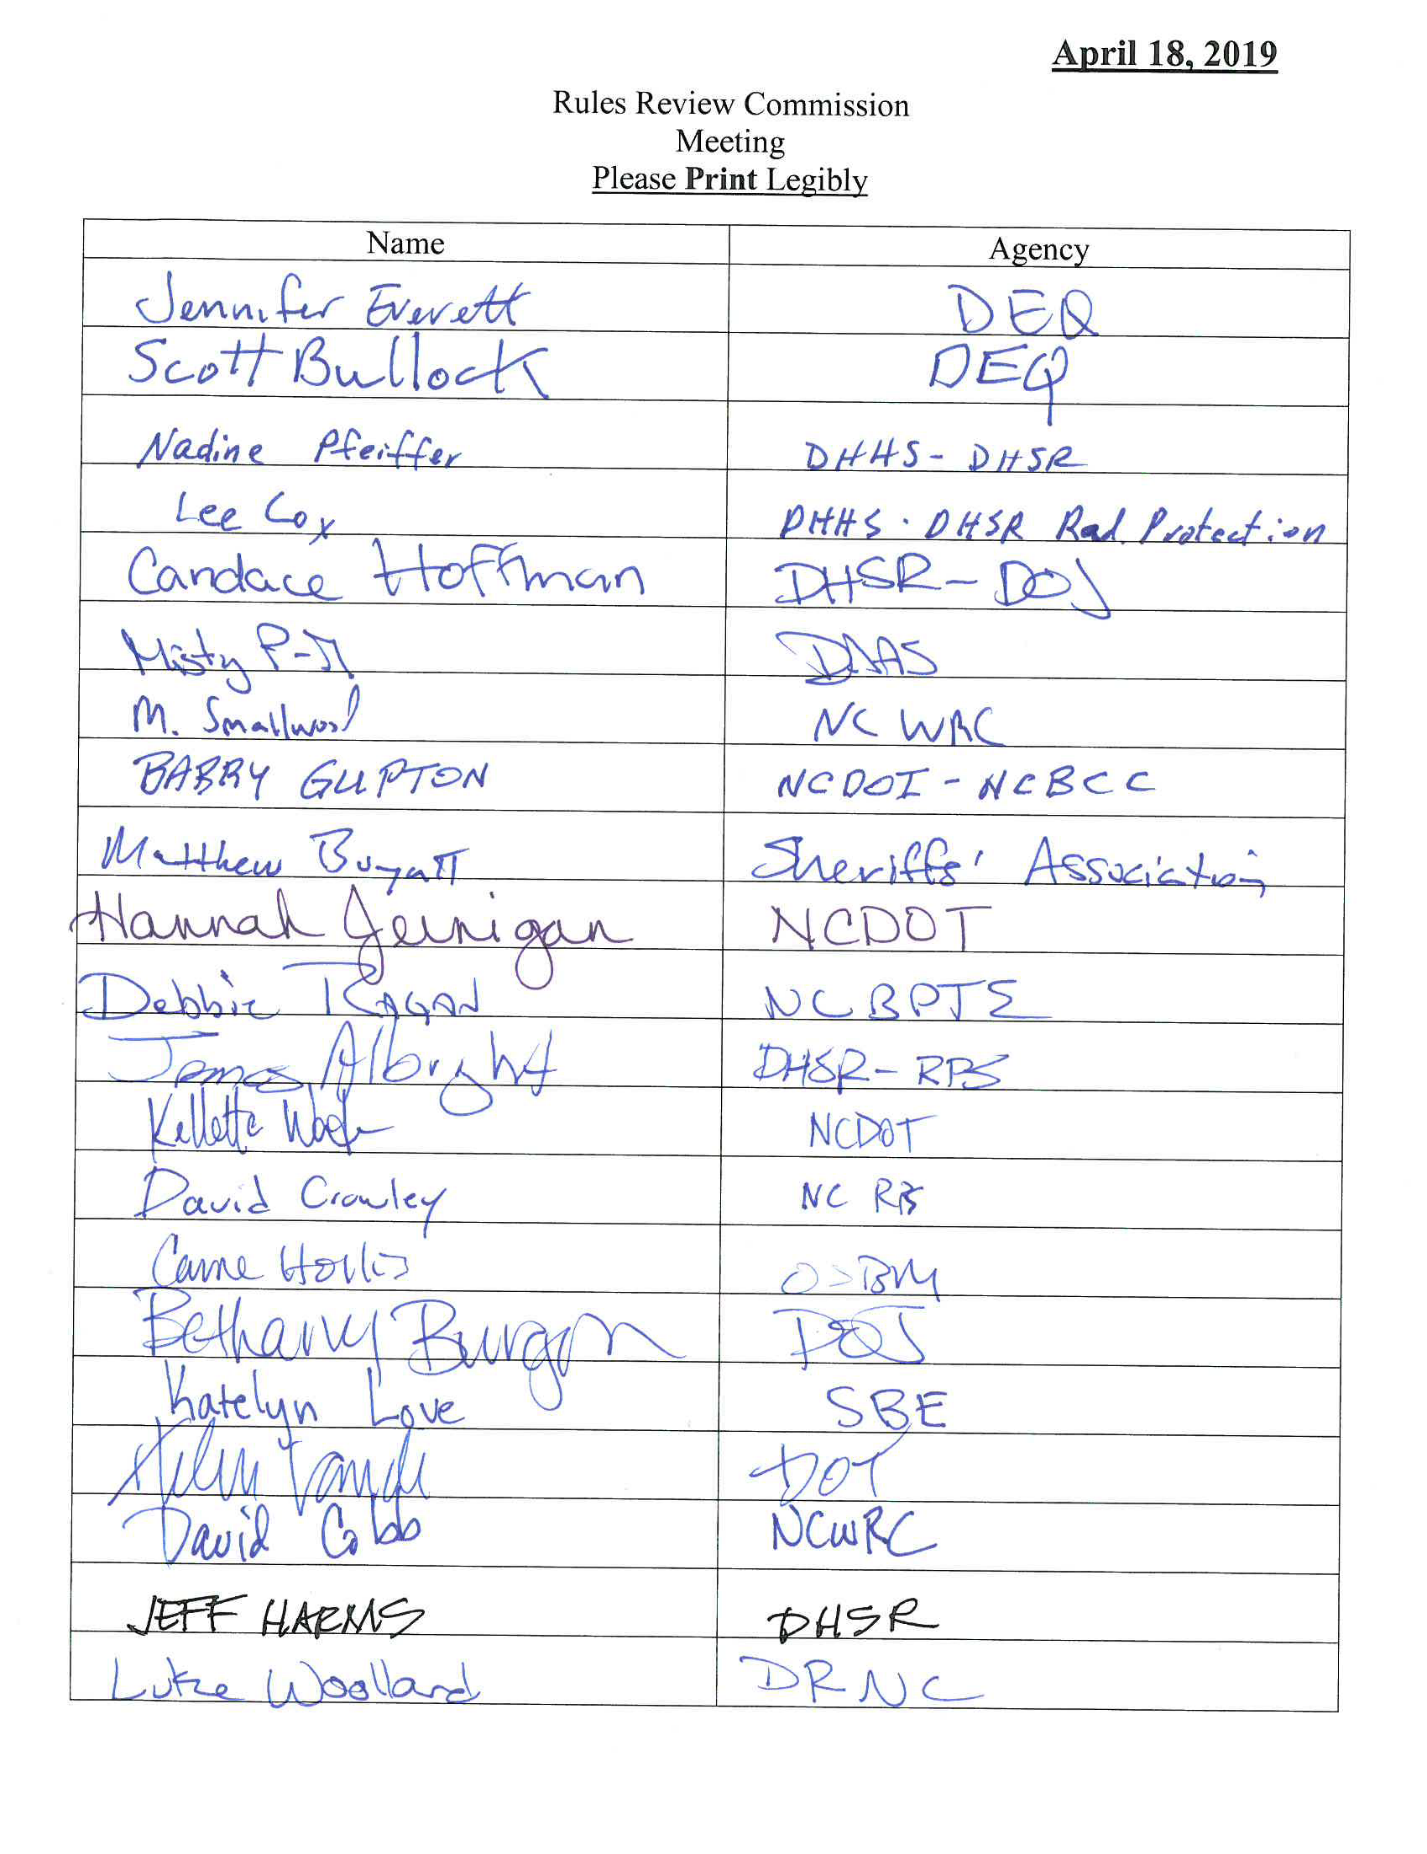 April 18, 2019
Rules Review Commission
Meeting
Please Print Legibly
Name Agency
Jennifer Everett DEQ
Scott Bullock DEQ
Nadine Pfeiffer DHHS - DHSR
Lee Cox DHHS - DHSR Rad. Protection
Candace Hoffman DHSR - DOJ
Misty
M. Smallwood NC WRC
BARRY GUPTON NCDOI - NCBCC
Matthew Sheriffs' Association
Hannah Jernigan NCDOT
Debbie RAGAN NCBPTE
James Albright DHSR - RPS
NCDOT
David Crawley NC RB
Carrie Hollis OSBM
Bethany Burgon DOJ
Katelyn Love SBE
DOT
David Cobb NCWRC
JEFF HARMS DHSR
Luke Woollard DRNC